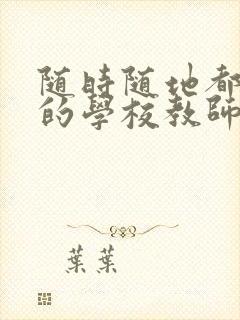 随時随地都
的學校教師
葉葉